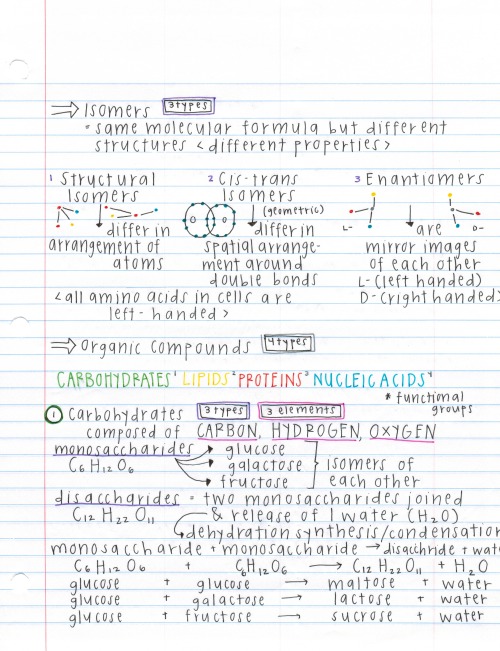 ⇒ Isomers 3 types
• same molecular formula but different
structures < different properties >
1 Structural Isomers
differ in
arrangement of
atoms
2 Cis-trans Isomers
(geometric)
differ in
spatial arrange-
ment around
double bonds
3 Enantiomers
L- D-
are
mirror images
of each other
L- (left handed)
D- (right handed)
< all amino acids in cells are
left-handed >
⇒ Organic compounds 4 types
CARBOHYDRATES¹ LIPIDS² PROTEINS³ NUCLEIC ACIDS⁴
* functional
groups
① Carbohydrates 3 types 3 elements
composed of CARBON, HYDROGEN, OXYGEN
monosaccharides → glucose
C6H12O6 → galactose
→ fructose
isomers of
each other
disaccharides = two monosaccharides joined
C12H22O11 & release of 1 water (H2O)
dehydration synthesis/condensation
monosaccharide + monosaccharide → disacchride + wat
C6H12O6 C6H12O6 → C12H22O11 + H2O
glucose + glucose → maltose + water
glucose + galactose → lactose + water
glucose + fructose → sucrose + water